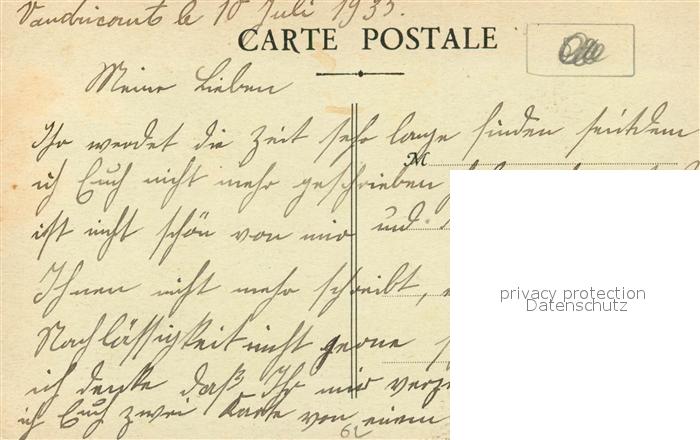 Vaudricourt le 10 Juli 1933.
CARTE POSTALE
Meine Lieben
Ihr werdet die Zeit sehr lange finden seitdem
M
ich Euch nicht mehr geschrieben
ist nicht schön von mir und
Ihnen nicht mehr schreibt,
Nachlässigkeit nicht gerne
ich denke daß Ihr mir verze
ich Euch zwei Karte von einem
62
privacy protection
Datenschutz